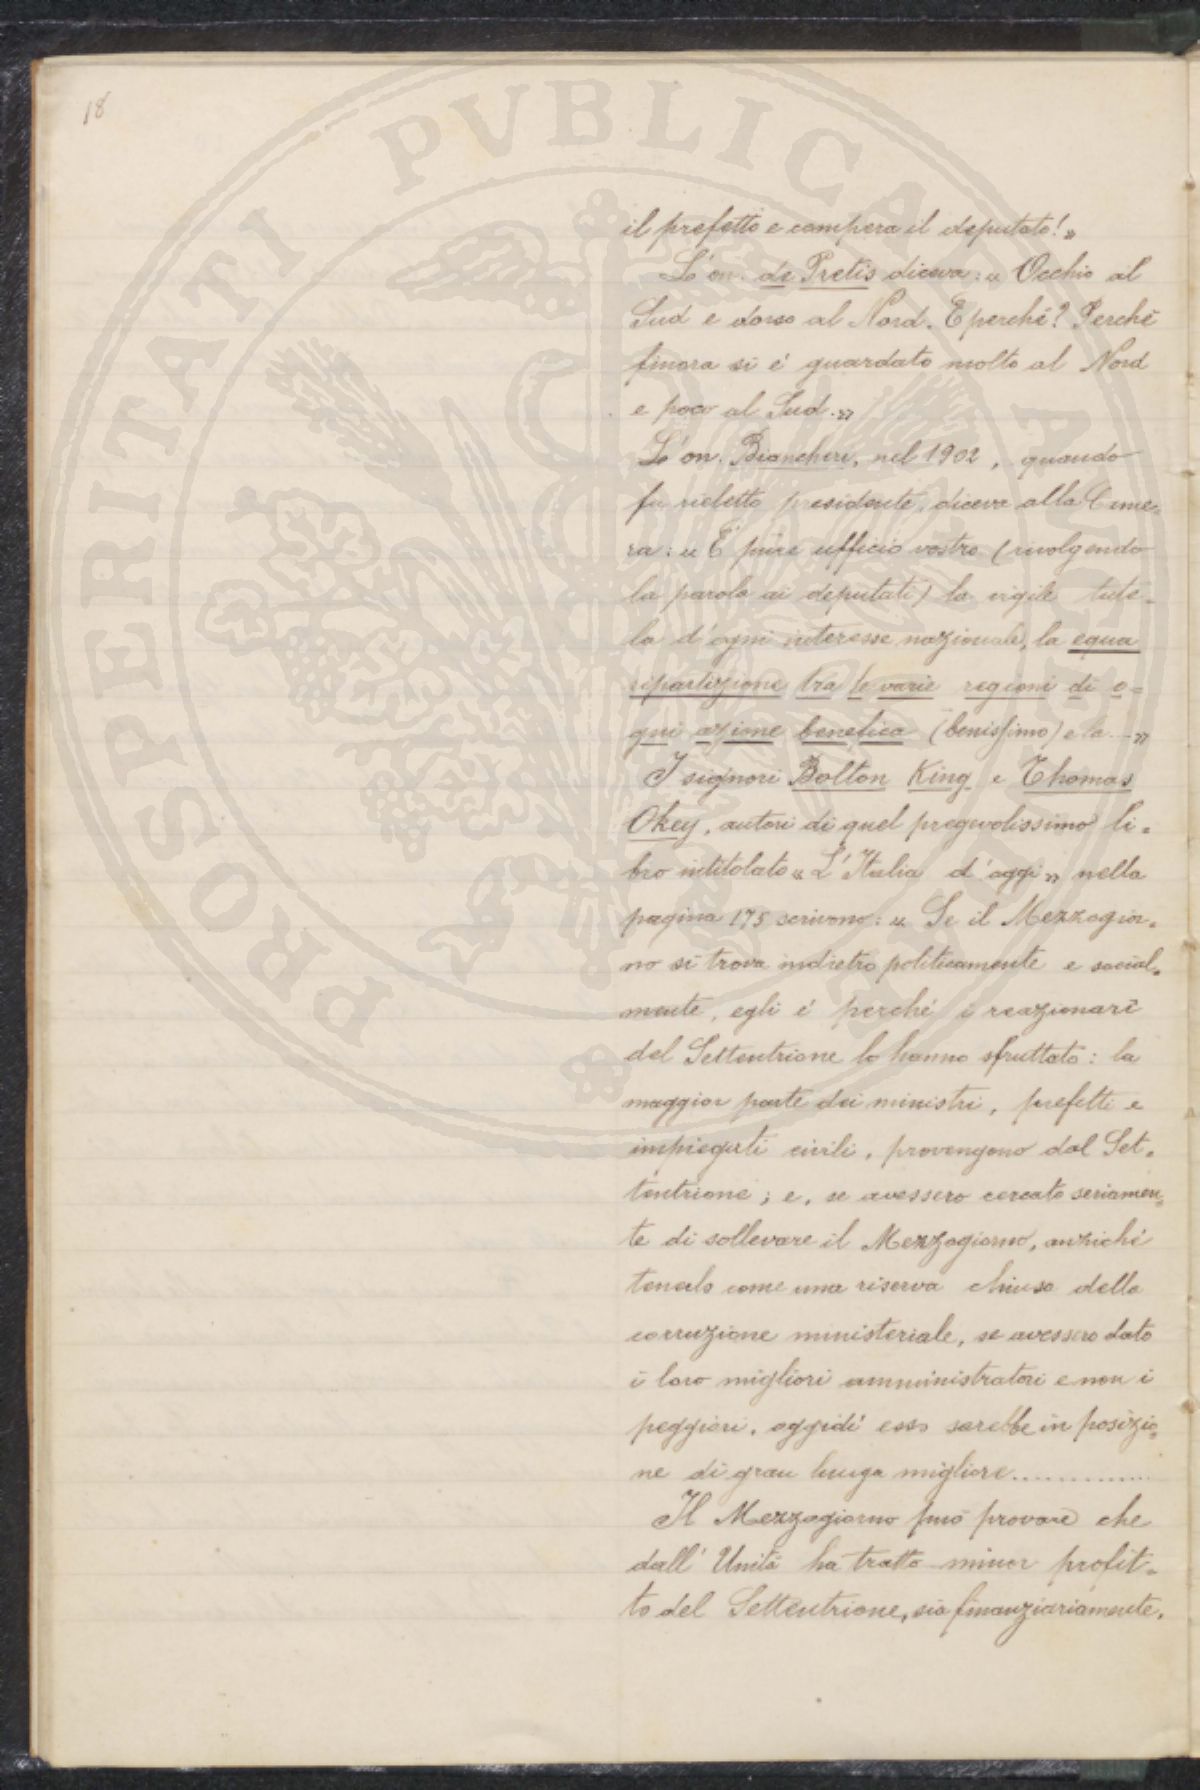 18
PROSPERITATI PVBLICAE AVGENDAE
il prefetto e compera il deputato!»
L'on. de Pretis diceva: « Occhio al
Sud e dorso al Nord. E perché? Perché
finora si é guardato molto al Nord
e poco al Sud.»
L'on. Biancheri, nel 1902, quando
fu rieletto presidente, diceva alla Came-
ra: « É pure ufficio vostro (rivolgendo
la parola ai deputati) la vigile tute-
la d'ogni interesse nazionale, la equa
ripartizione tra le varie regioni di o-
gni azione benefica (benissimo) e la...»
I signori Bolton King e Thomas
Okey, autori di quel pregevolissimo li-
bro intitolato « L'Italia d'oggi» nella
pagina 175 scrivono: « Se il Mezzogior-
no si trova indietro politicamente e social-
mente, egli é perché i reazionari
del Settentrione lo hanno sfruttato: la
maggior parte dei ministri, prefetti e
impiegati civili, provengono dal Set-
tentrione; e, se avessero cercato seriamen-
te di sollevare il Mezzogiorno, anziché
tenerlo come una riserva chiusa della
corruzione ministeriale, se avessero dato
i loro migliori amministratori e non i
peggiori, oggidí esso sarebbe in posizio-
ne di gran lunga migliore.............
Il Mezzogiorno può provare che
dall' Unità ha tratto minor profit-
to del Settentrione, sia finanziariamente,